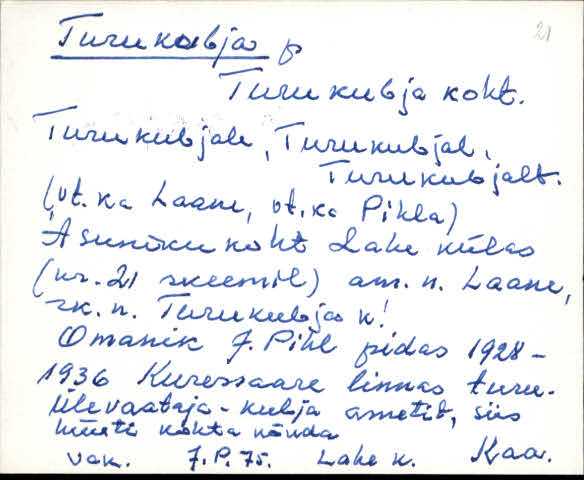 21
Turukubjas p
Turukubja koht.
Turukubjale, Turukubjal,
Turukubjalt.
(vt. ka Laane, vt. ka Pihla)
Asuniku koht Lahe külas
(nr. 21 skeemil) am. n. Laane,
rk. n. Turukubjas k!
Omanik J. Pihl pidas 1928-
1936 Kuressaare linnas turu-
ülevaataja-kubja ametit, siis
hüüti kohta nõnda
vak. J. P. 75. Lahe k. Kaa.